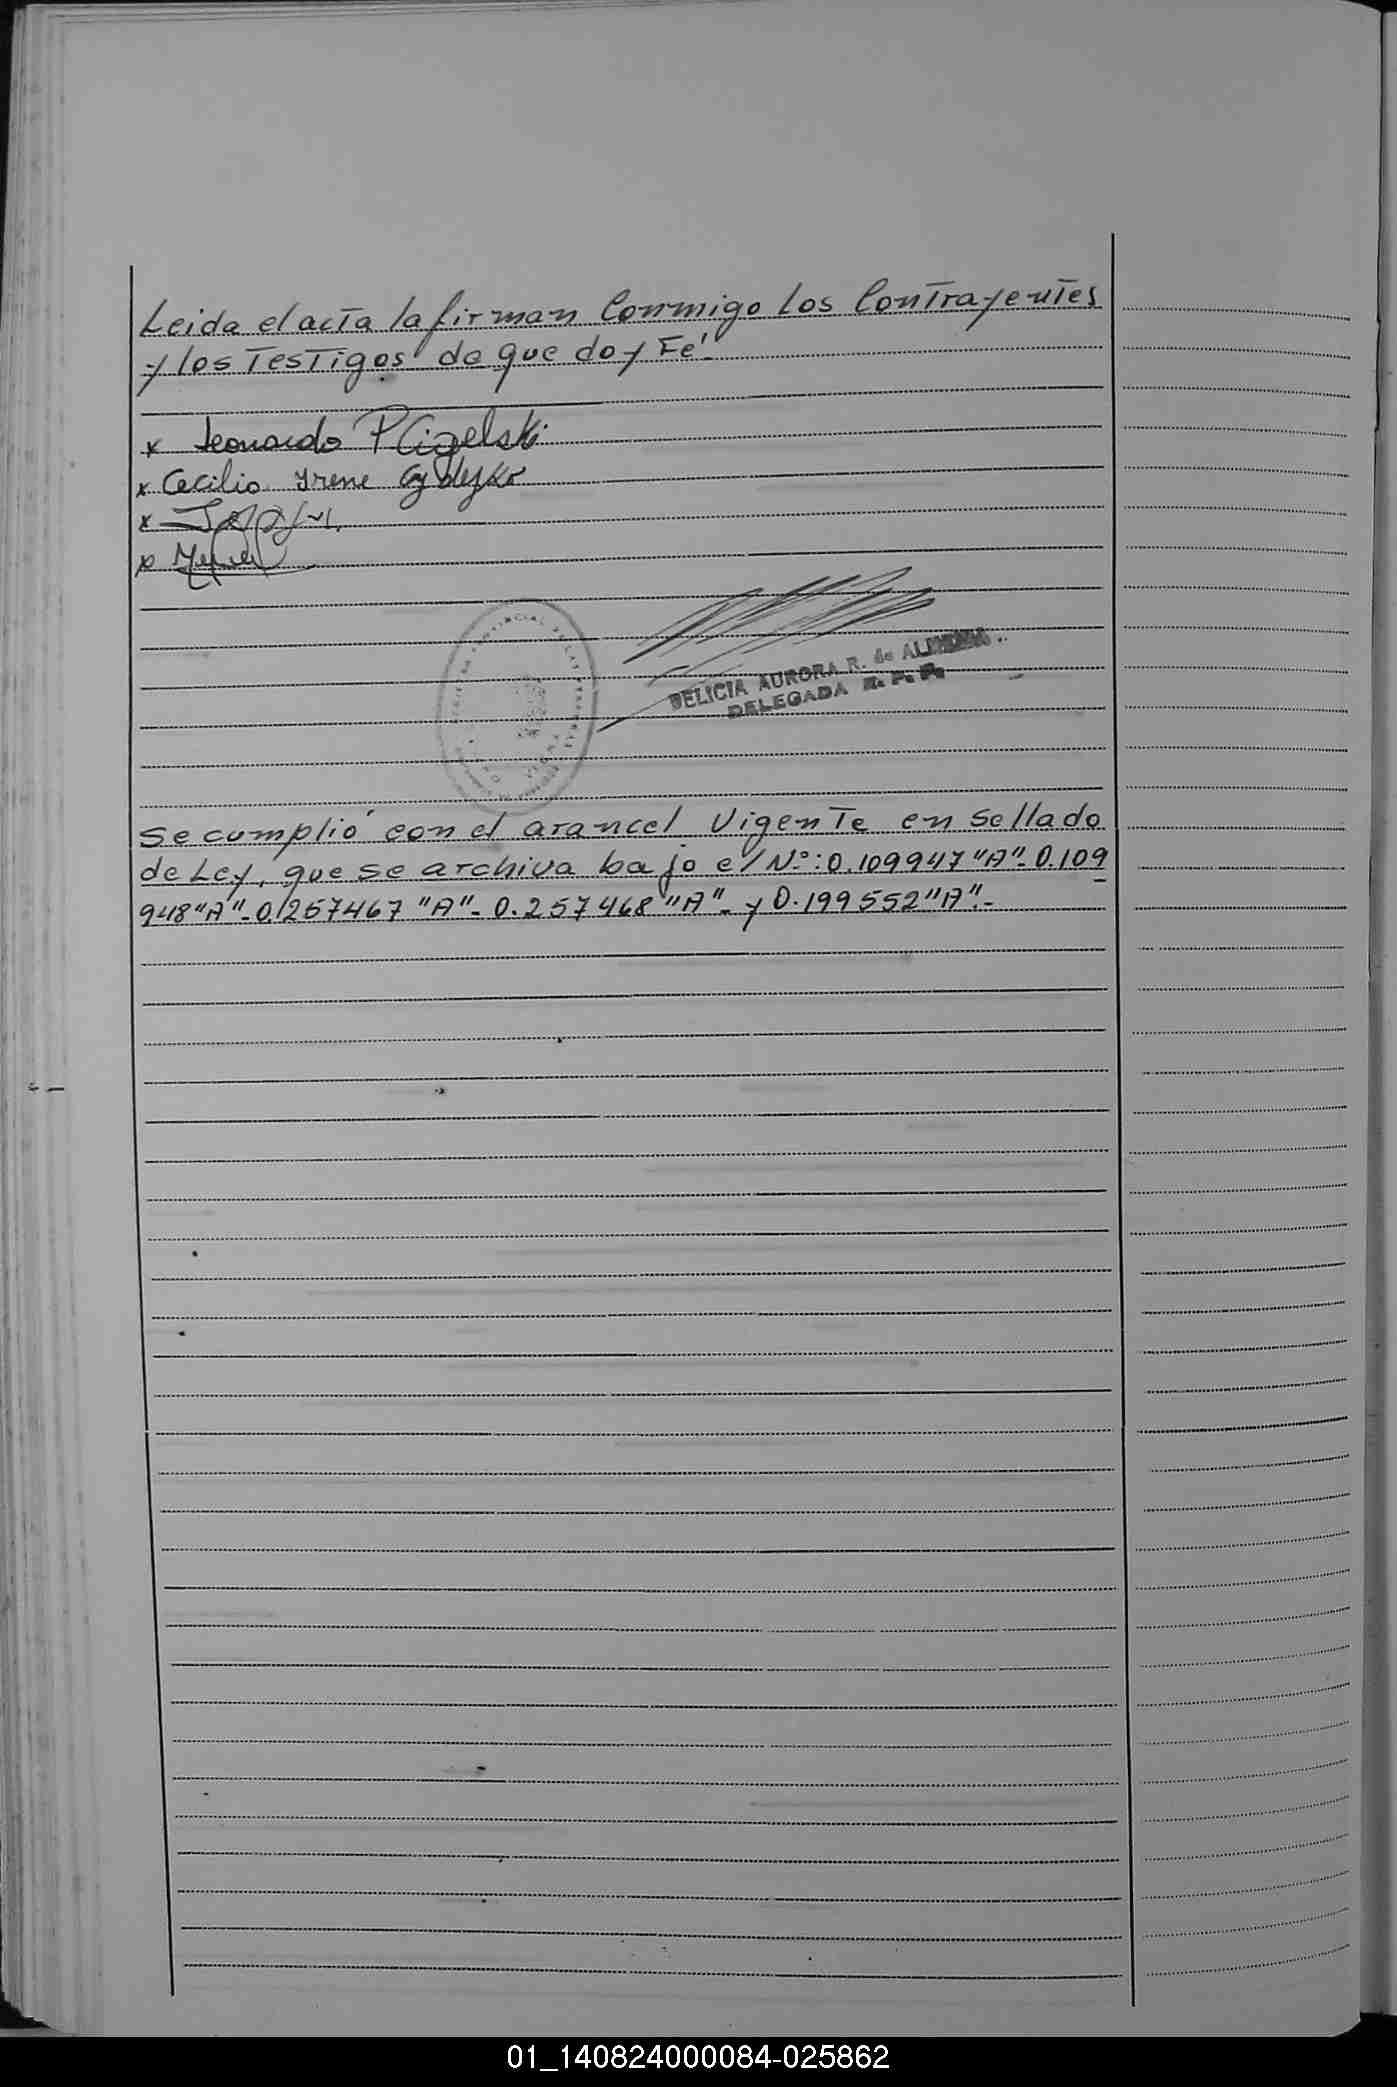 Leida el acta la firman Conmigo Los Contrayentes
y los Testigos de que doy Fé.
x Leonardo P Cizelski
x Cecilia Irene
x
x
DELICIA AURORA R. de
DELEGADA
Se cumplió con el arancel Vigente en Sellado
de Ley, que se archiva bajo el Nº: 0.109947 "A"- 0.109
948 "A"- 0.257467 "A"- 0.257468 "A"- y 0.199552 "A".-
01_140824000084-025862